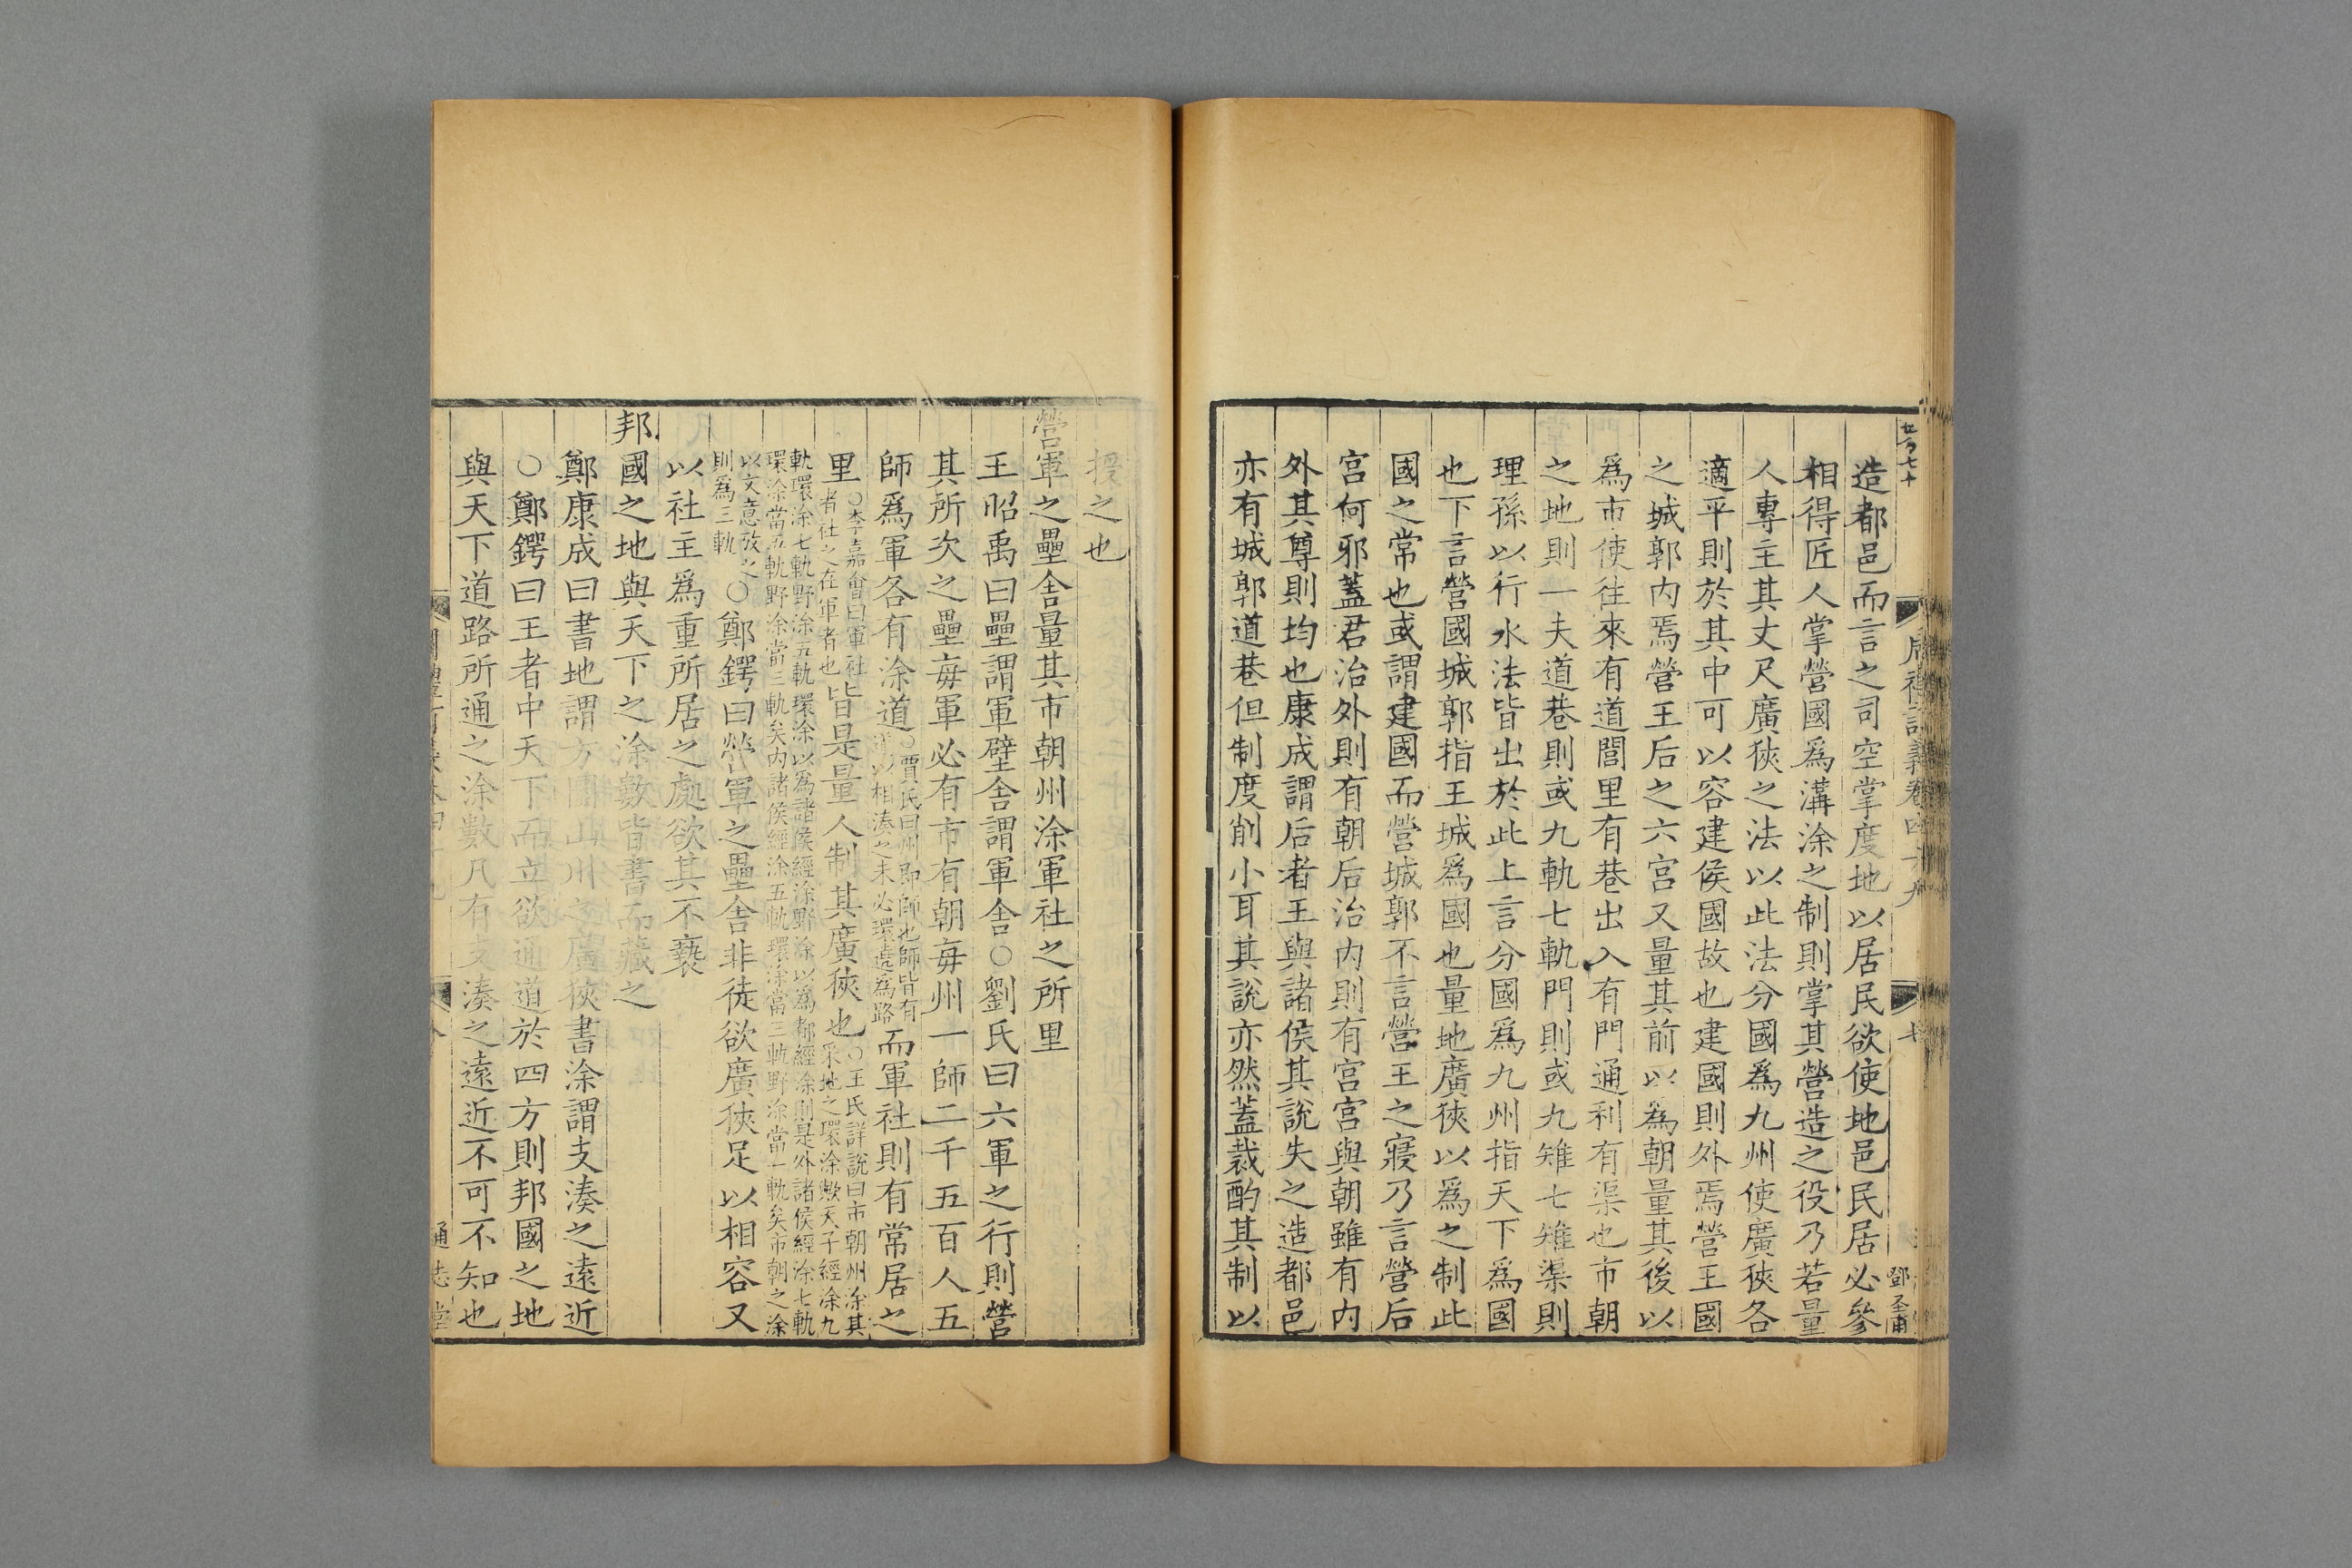 周禮訂義卷四十九
七
鄧圣甫
造都邑而言之司空掌度地以居民欲使地邑民居必參
相得匠人掌營國爲溝涂之制則掌其營造之役乃若量
人專主其丈尺廣狹之法以此法分國爲九州使廣狹各
適平則於其中可以容建侯國故也建國則外焉營王國
之城郭内焉營王后之六宫又量其前以爲朝量其後以
爲市使往來有道閭里有巷出入有門通利有渠也市朝
之地則一夫道巷則或九軌七軌門則或九雉七雉渠則
理孫以行水法皆出於此上言分國爲九州指天下爲國
也下言營國城郭指王城爲國也量地廣狹以爲之制此
國之常也或謂建國而營城郭不言營王之寢乃言營后
宫何邪蓋君治外則有朝后治内則有宫宫與朝雖有内
外其尊則均也康成謂后者王與諸侯其說失之造都邑
亦有城郭道巷但制度削小耳其說亦然蓋裁酌其制以
授之也
營軍之壘舍量其市朝州涂軍社之所里
王昭禹曰壘謂軍壁舍謂軍舍○劉氏曰六軍之行則營
其所次之壘每軍必有市有朝每州一師二千五百人五
師爲軍各有涂道○賈氏曰州即師也師皆有道以相湊之未必環遶爲路而軍社則有常居之
里○李嘉會曰軍社者社之在軍者也皆是量人制其廣狹也○王氏詳說曰市朝州涂其采地之環涂歟天子經涂九
軌環涂七軌野涂五軌環涂以爲諸侯經涂野涂以爲都經涂則是外諸侯經涂七軌
環涂當五軌野涂當三軌矣内諸侯經涂五軌環涂當三軌野涂當一軌矣市朝之涂
以文意攷之則爲三軌○鄭鍔曰營軍之壘舍非徒欲廣狹足以相容又
以社主爲重所居之處欲其不褻
邦國之地與天下之涂數皆書而藏之
鄭康成曰書地謂方圓山川之廣狹書涂謂支湊之遠近
○鄭鍔曰王者中天下而立欲通道於四方則邦國之地
與天下道路所通之涂數凡有支湊之遠近不可不知也
通志堂